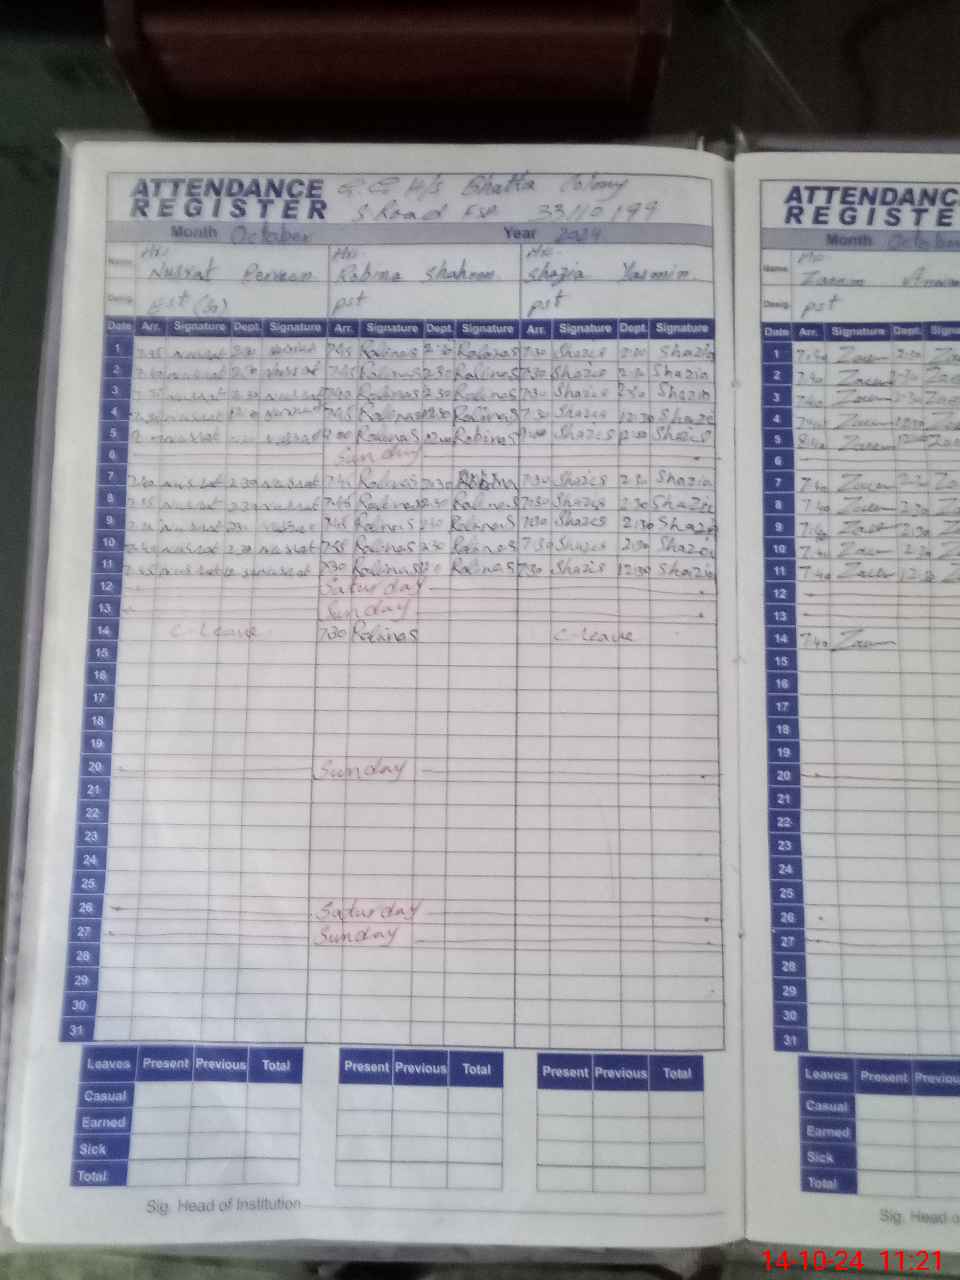 ATTENDANCE
REGISTER
H/S Bhatta Colony
S Road FSD 33110199
Month October Year 2024
Name Nusrat Perveen Robina Shaheen Shazia Yasmin
Desig. Est (Sr) pst pst
Date Arr. Signature Dept. Signature Arr. Signature Dept. Signature Arr. Signature Dept. Signature
1 7:45 nusrat 2:30 nusrat 7:45 Robinas 2:30 Robinas 7:30 Shazia 2:30 Shazia
2 nusrat 2:30 nusrat 7:45 Robinas 2:30 Robinas 7:30 Shazia 2:30 Shazia
3 nusrat 2:30 nusrat 7:40 Robinas 2:30 Robinas 7:30 Shazia 2:30 Shazia
4 nusrat nusrat 7:45 Robinas 12:30 Robinas 7:30 Shazia 12:30 Shazia
5 nusrat nusrat Robinas Robinas Shazia Shazia
6 Sunday
7 7:40 nusrat 2:30 nusrat 7:45 Robinas 2:30 7:30 Shazia 2:30 Shazia
8 nusrat 2:30 nusrat 7:45 Robinas 2:30 Robinas 7:30 Shazia 2:30 Shazia
9 nusrat nusrat 7:45 Robinas 2:30 Robinas 7:30 Shazia 2:30 Shazia
10 nusrat 2:30 nusrat 7:55 Robinas 2:30 Robinas 7:30 Shazia 2:30 Shazia
11 nusrat nusrat 7:30 Robinas Robinas 7:30 Shazia 12:30 Shazia
12 Saturday
13 Sunday
14 C-Leave 7:30 Robinas C-Leave
15
16
17
18
19
20 Sunday
21
22
23
24
25
26 Saturday
27 Sunday
28
29
30
31
Leaves Present Previous Total Present Previous Total Present Previous Total
Casual
Earned
Sick
Total
Sig. Head of Institution
ATTENDANC
REGISTE
Month October
Name
Desig. pst
Date Arr. Signature Dept. Signa
1 7:40 Zaeem 2:30
2 7:40 Zaeem 2:30
3 7:40 Zaeem 2:30
4 7:40 Zaeem
5 Zaeem
6
7 7:40 Zaeem
8 7:40 Zaeem 2:30
9 7:40 Zaeem 2:30
10 7:40 Zaeem 2:30
11 7:40 Zaeem 12:30
12
13
14 7:40 Zaeem
15
16
17
18
19
20
21
22
23
24
25
26
27
28
29
30
31
Leaves Present Previou
Casual
Earned
Sick
Total
Sig. Head o
14-10-24 11:21